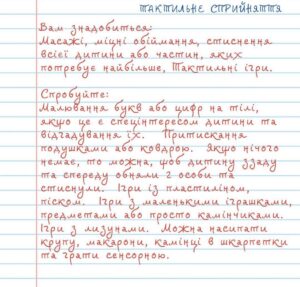 ТАКТИЛЬНЕ СПРИЙНЯТТЯ
Вам знадобиться:
Масажі, міцні обіймання, стиснення
всієї дитини або частин, яких
потребує найбільше, Тактильні ігри.
Спробуйте:
Малювання букв або цифр на тілі,
якщо це є спецінтересом дитини та
відгадування їх. Притискання
подушками або ковдрою. Якщо нічого
немає, то можна, щоб дитину ззаду
та спереду обняли 2 особи та
стиснули. Ігри із пластиліном,
піском. Ігри з маленькими іграшками,
предметами або просто камінчиками.
Ігри з лизунами. Можна насипати
крупу, макарони, камінці в шкарпетки
та грати сенсорною.